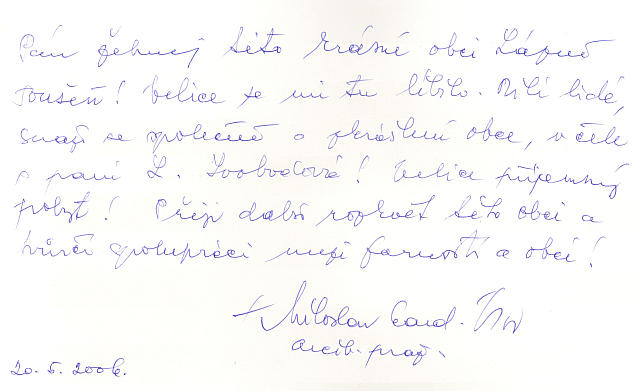 Pán žehnej této krásné obci Lázně
Toušeň! Velice se mi tu líbilo. Milí lidé,
snaží se společně o zkrášlení obce, v čele
s paní L. Svobodová! Velice příjemný
pobyt! Přeji další rozkvět této obci a
tvůrčí spolupráci mezi farností a obcí!
+ Miloslav Card. Vlk
arcib. praž.
20. 5. 2006.